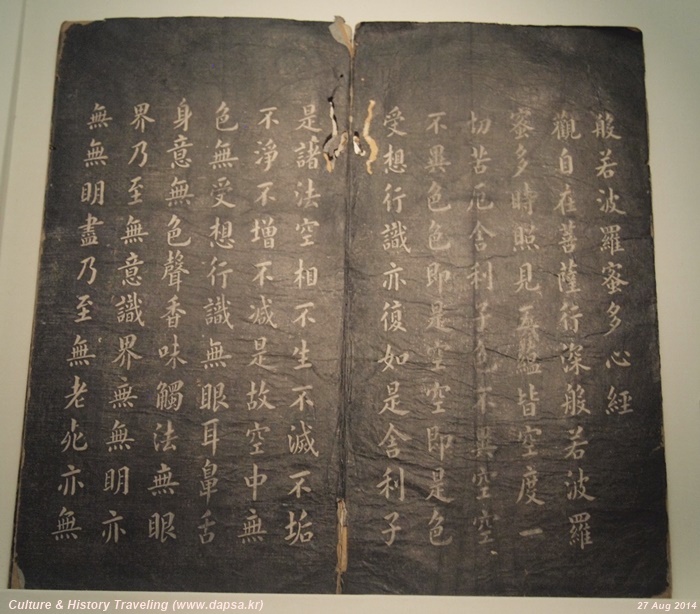 般若波羅蜜多心經
觀自在菩薩行深般若波羅
蜜多時照見五蘊皆空度一
切苦厄舍利子色不異空空
不異色色即是空空即是色
受想行識亦復如是舍利子
是諸法空相不生不滅不垢
不淨不增不減是故空中無
色無受想行識無眼耳鼻舌
身意無色聲香味觸法無眼
界乃至無意識界無無明亦
無無明盡乃至無老死亦無
Culture & History Traveling (www.dapsa.kr)
27 Aug 2014